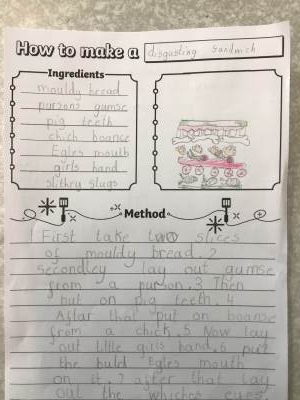 How to make a
disgusting sandwich
Ingredients
mouldy bread
pursons gumse
pig teeth
chich boance
Egles mouth
girls hand
slithry slugs
Method
1 First take two slices
of mouldy bread. 2
Secondley lay out gumse
from a purson. 3 Then
but on pig teeth. 4
Aftar that put on boanse
from a chick. 5 Now lay
out little girls hand. 6 put
the buld Egles mouth
on it. 7 after that lay
out the whiches eyes.